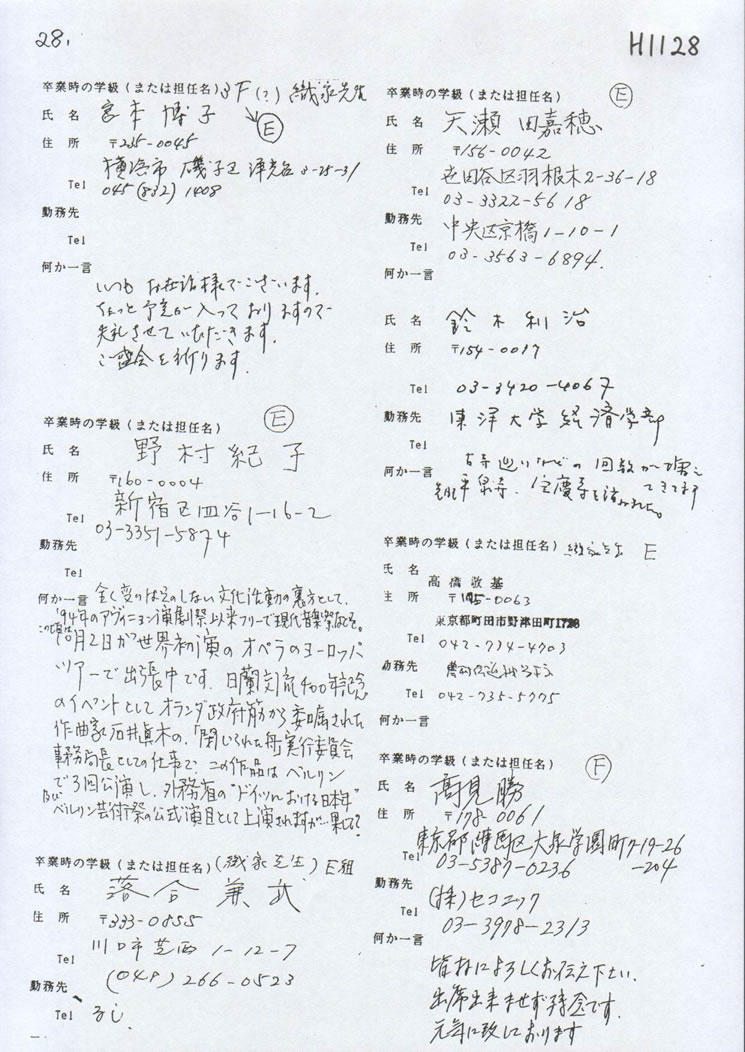 28.
H1128
卒業時の学級（または担任名）3F(?) 織家先生
氏 名 宮本 博子 E
住 所 〒235-0045
横浜市 磯子区 洋光台 3-25-31
Tel 045 (832) 1408
勤務先
Tel
何か一言
いつも お世話様でございます。
ちょっと予定が入っておりますので
失礼させていただきます。
ご盛会を祈ります。
卒業時の学級（または担任名） E
氏 名 野村紀子
住 所 〒160-0004
新宿区四谷1-16-2
Tel 03-3351-5874
勤務先
Tel
何か一言 全く変りばえのしない文化活動の裏方として、
'94年のアヴィニョン演劇祭以来フリーで現代音楽祭などを。
この頃は 10月2日が世界初演のオペラのヨーロッパ
ツアーで出張中です。日蘭交流400年記念
のイベントとしてオランダ政府筋から委嘱された
作曲家石井眞木の、「閉じられた舟」実行委員会
事務局長としての仕事で、この作品はベルリン
で3回公演し、外務省の"ドイツにおける日本年"
及び ベルリン芸術祭の公式演目として上演されますが…果して?
卒業時の学級（または担任名）(織家先生) E組
氏 名 落合 兼武
住 所 〒333-0855
川口市芝西 1-12-7
Tel (048) 266-0523
勤務先
Tel なし
卒業時の学級（または担任名） E
氏 名 天瀬 田嘉穂
住 所 〒156-0042
世田谷区羽根木2-36-18
Tel 03-3322-5618
勤務先 中央区京橋1-10-1
Tel 03-3563-6894.
何か一言
氏 名 鈴木 利治
住 所 〒154-0017
Tel 03-3420-4067
勤務先 東洋大学 経済学部
Tel
何か一言 古寺巡りなどの回数が増えてきてます
卒業時の学級（または担任名） 織家先生 E
氏 名 高橋敬基
住 所 〒195-0063
東京都町田市野津田町1728
Tel 042-734-4703
勤務先
Tel 042-735-5775
何か一言
卒業時の学級（または担任名） F
氏 名 高見 勝
住 所 〒178-0061
東京都練馬区大泉学園町7-19-26-204
Tel 03-5387-0236
勤務先 (株)セコニック
Tel 03-3978-2313
何か一言
皆様によろしくお伝え下さい。
出席出来ませず残念です。
元気に致しております